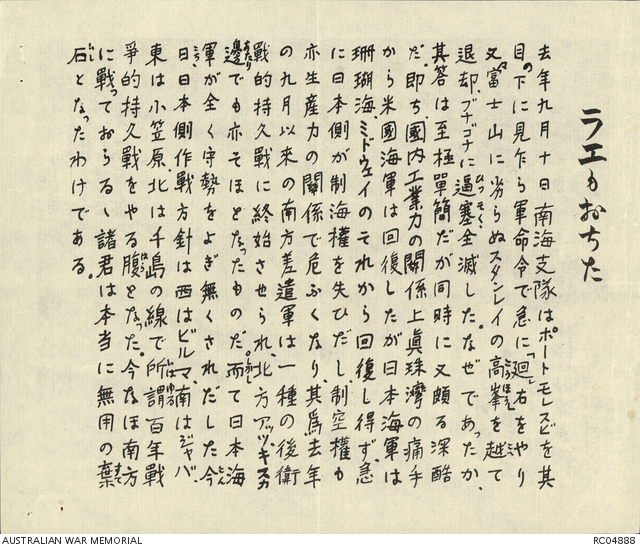 ラエもおちた
去年九月十日南海支隊はポートモレスビを其
目の下に見乍ら軍命令で急に「廻」右をやり
又富士山に劣らぬスタンレイの高峯を越て
退却、ブナゴナに逼塞全滅した。なぜであったか、
其答は至極單簡だが同時に又頗る深酷
だ。即ち國内工業力の關係上眞珠灣の痛手
から米國海軍は回復したが日本海軍は
珊瑚海、ミドウェイのそれから回復し得ず、急
に日本側が制海權を失ひだし、制空權も
亦生産力の關係で危ふくなり、其爲去年
の九月以来の南方差遣軍は一種の後衛
戰的持久戰に終始させられ、北方アッツ、キスカ
邊でも亦そほとなったものだ。而て日本海
軍が全く守勢をよぎ無くされだした今
日日本側作戰方針は西はビルマ、南はジャバ、
東は小笠原、北は千島の線で所謂百年戰
爭的持久戰をやる腹となった。今なほ南方
に戰っておらるゝ諸君は本当に無用の棄
石となったわけである。
AUSTRALIAN WAR MEMORIAL
RC04888